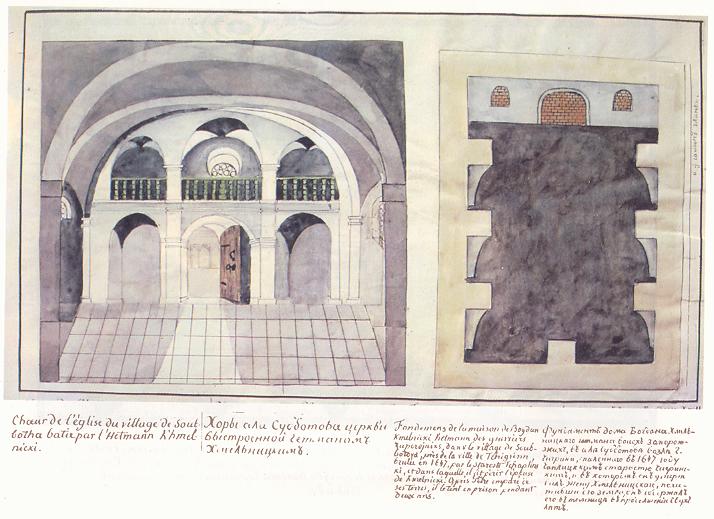 Chœur de l'église du village de Soub-
botha batie par l'Hetmann Khmel-
nicki.
Хоры села Субботова церкви
выстроенной гетманомъ
Хмельницкимъ.
Fondemens de la maison de Bogdan
Kmelnicki Hetmann des guerriers
Zaporojains, dans le village de Soub-
botoya, près de la ville de Tchigirinn,
brulée en 1647, par le Staroste Tchaplins
ki, et dans laquelle il périt l'épouse
de Kmelnicki. Après s'être emparé de
ses terres, il le tint en prison pendant
deux ans.
Фундаментъ дома Богдана Хмель-
ницкаго гетмана войскъ запорож-
жихъ, въ села Субботова возлѣ
Чигирина, спаленнаго въ 1647 году
Чаплицкимъ старостою Чигирин-
скимъ, и въ которомъ
жену Хмельницкаго,
его землю,
его въ темницѣ въ продолженіи двухъ
лѣтъ.